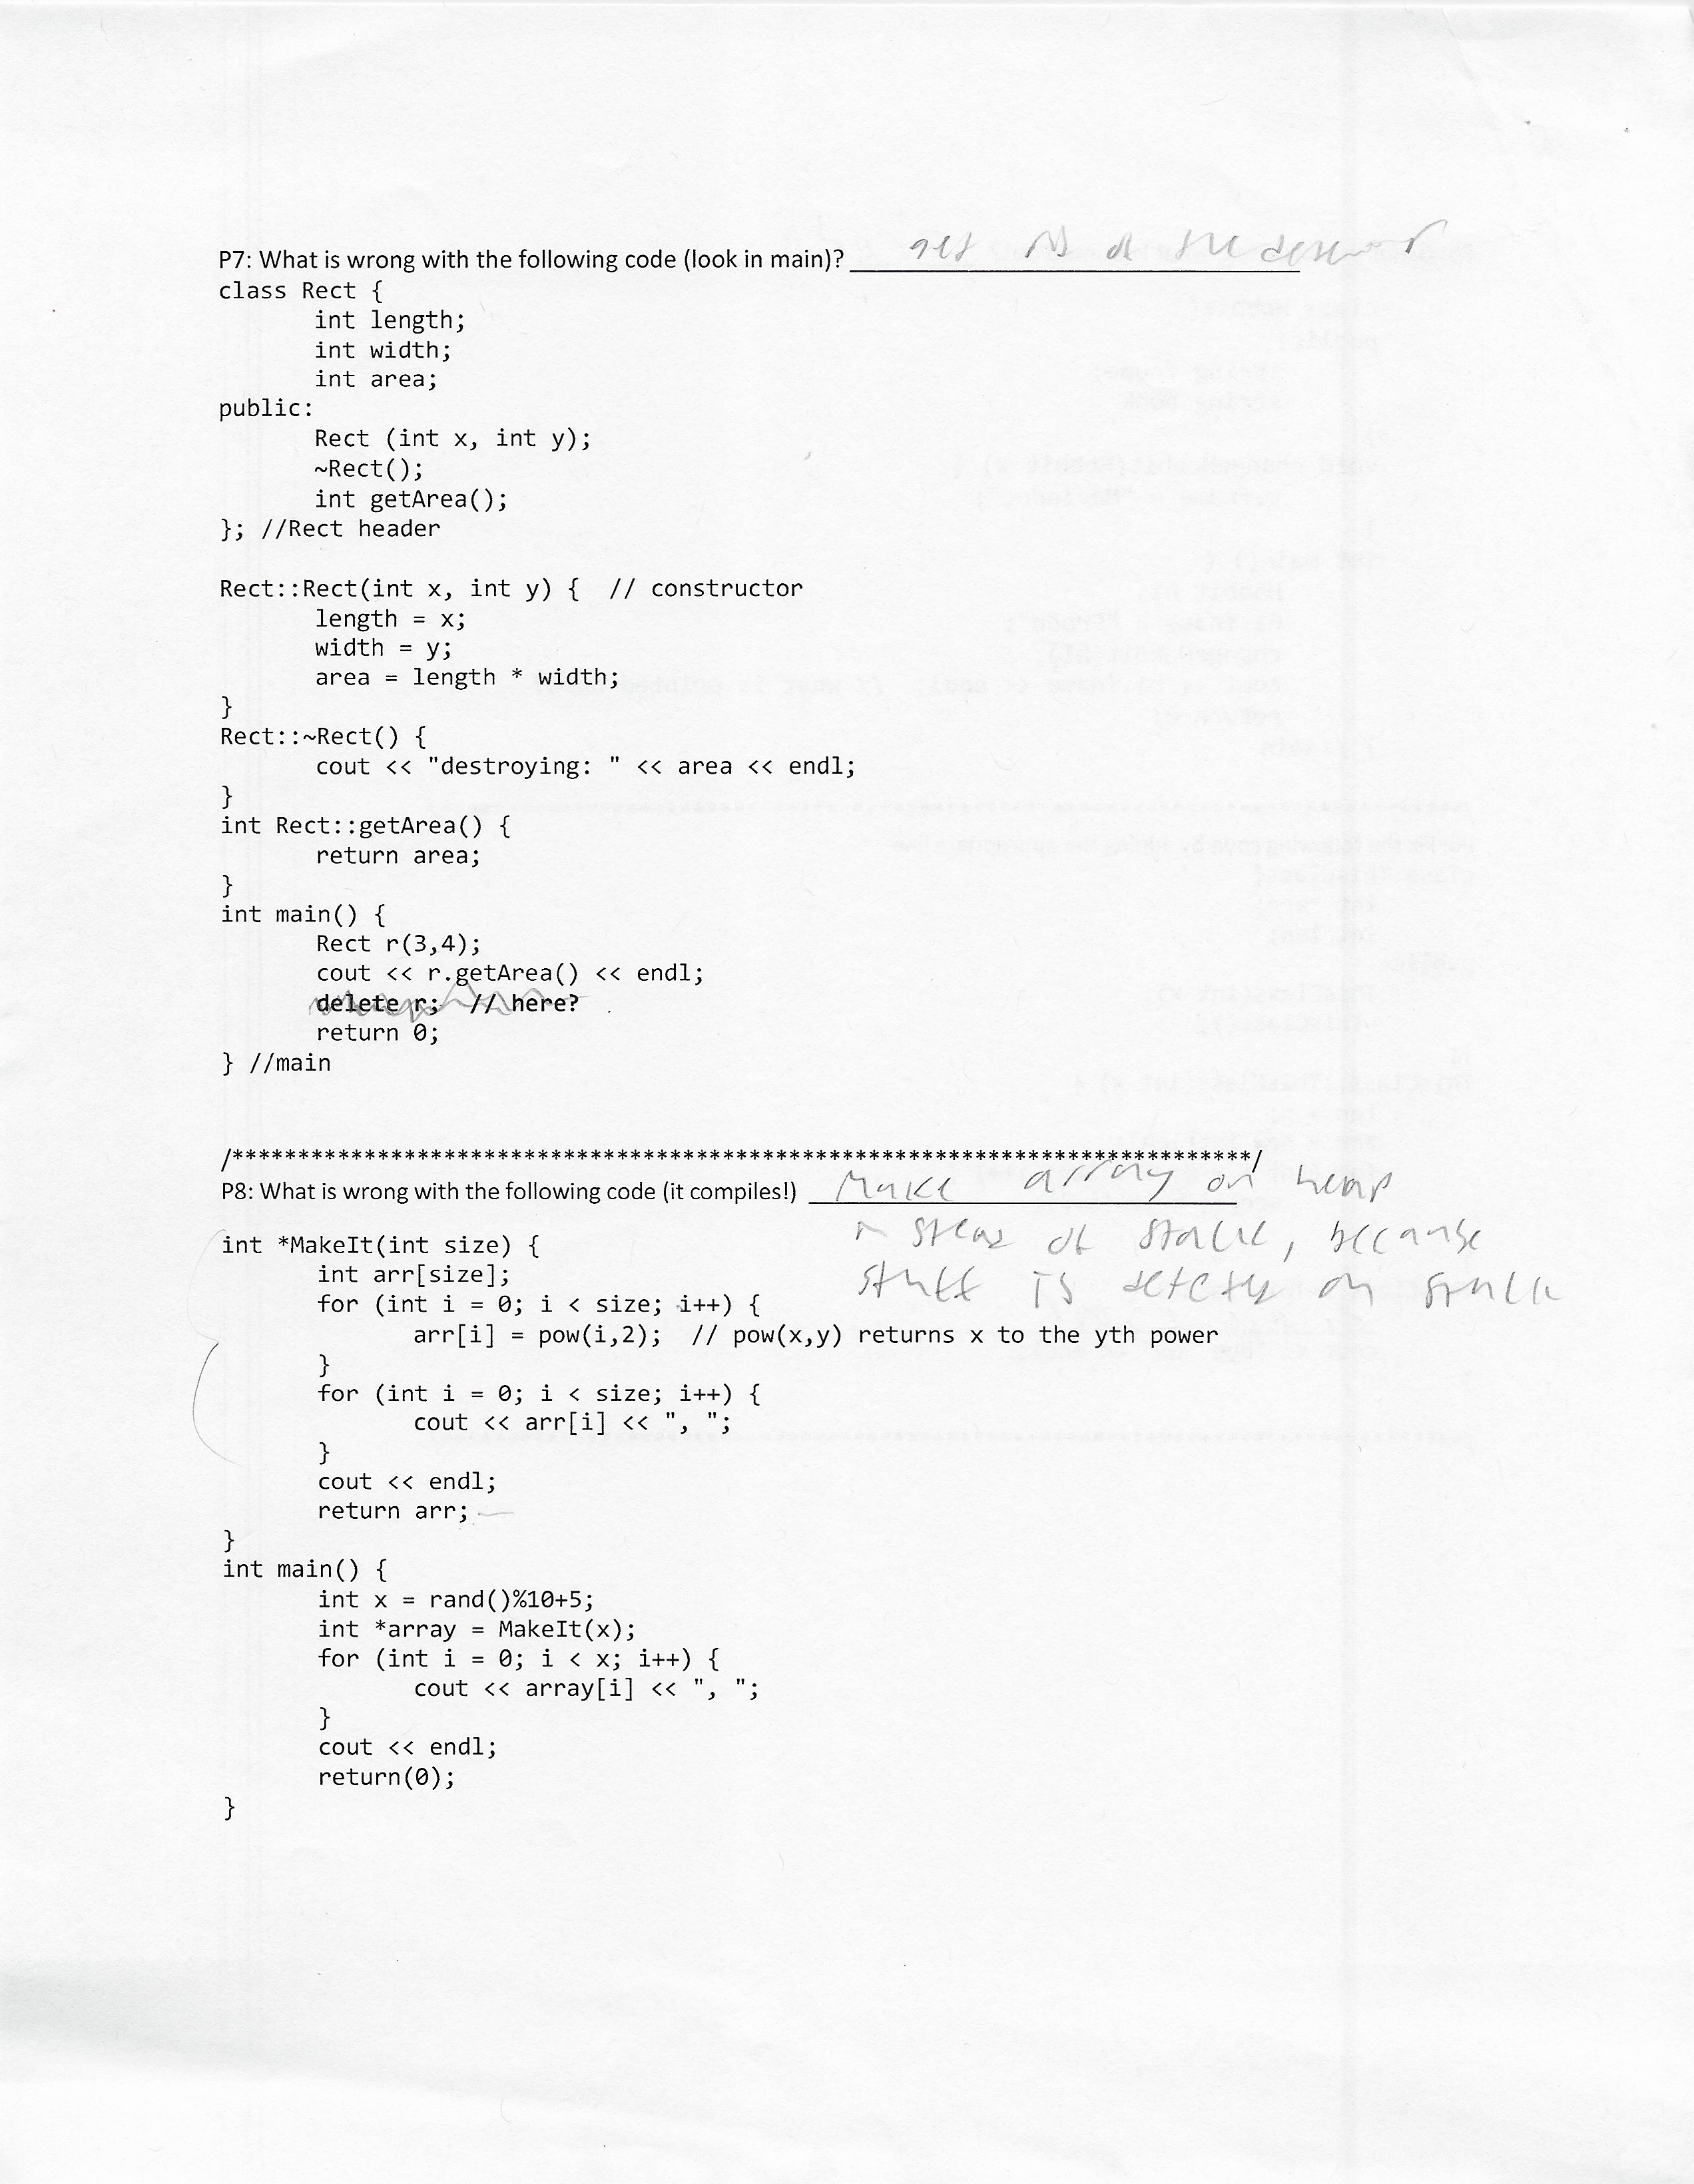 P7: What is wrong with the following code (look in main)? get rid of the
class Rect {
int length;
int width;
int area;
public:
Rect (int x, int y);
~Rect();
int getArea();
}; //Rect header
Rect::Rect(int x, int y) { // constructor
length = x;
width = y;
area = length * width;
}
Rect::~Rect() {
cout << "destroying: " << area << endl;
}
int Rect::getArea() {
return area;
}
int main() {
Rect r(3,4);
cout << r.getArea() << endl;
delete r; // here?
return 0;
} //main
/******************************************************************************/
P8: What is wrong with the following code (it compiles!) Make array on heap
instead of stack, because
int *MakeIt(int size) {
stuff is on stack
int arr[size];
for (int i = 0; i < size; i++) {
arr[i] = pow(i,2); // pow(x,y) returns x to the yth power
}
for (int i = 0; i < size; i++) {
cout << arr[i] << ", ";
}
cout << endl;
return arr;
}
int main() {
int x = rand()%10+5;
int *array = MakeIt(x);
for (int i = 0; i < x; i++) {
cout << array[i] << ", ";
}
cout << endl;
return(0);
}